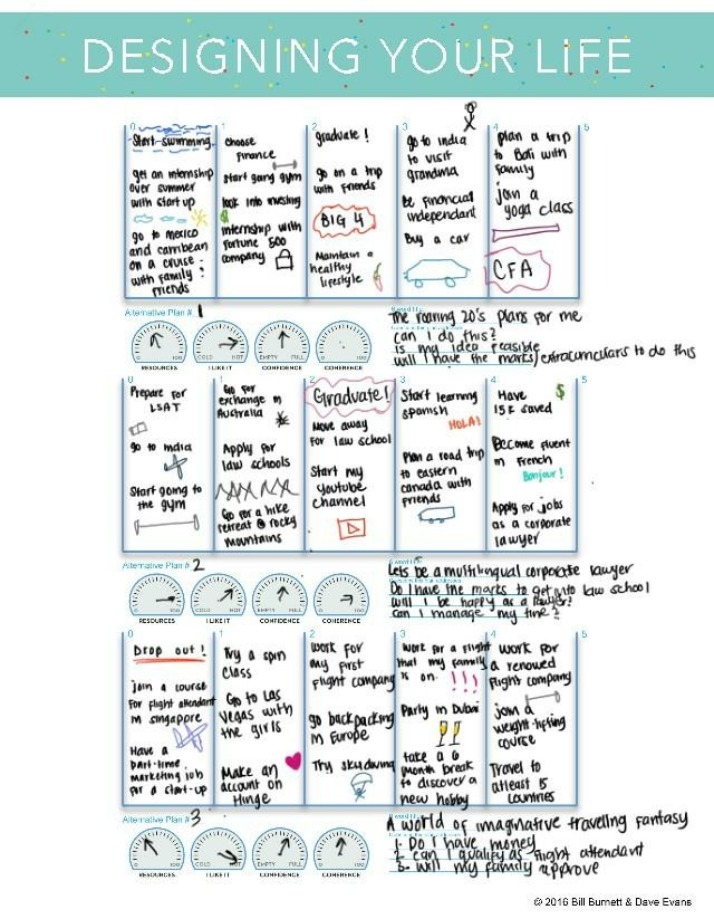 DESIGNING YOUR LIFE
0
Start swimming
get an internship
over summer
with start up
go to mexico
and carribean
on a cruise
with family &
friends
1
Choose
Finance
start going gym
look into investing
$
internship with
Fortune 500
company
2
graduate!
go on a trip
with friends
BIG 4
Maintain a
healthy
lifestyle
3
go to india
to visit
grandma
Be financial
independant
Buy a car
4
plan a trip
to Bali with
family
join a
yoga class
CFA
5
Alternative Plan # 1
0 100
RESOURCES
COLD HOT
I LIKE IT
EMPTY FULL
CONFIDENCE
0 100
COHERENCE
The roaring 20's plans for me
can I do this?
is my idea feasible
will I have the marks/extracurriculars to do this
0
Prepare for
LSAT
go to india
Start going to
the gym
1
Go for
exchange in
Australia
Apply for
law schools
Go for a hike
retreat @ rocky
mountains
2
Graduate!
Move away
for law school
Start my
youtube
channel
3
Start learning
spanish
HOLA!
Plan a road trip
to eastern
canada with
friends
4
Have $
15K saved
Become fluent
in French
Bonjour!
Apply for jobs
as a corporate
lawyer
5
Alternative Plan # 2
0 100
RESOURCES
COLD HOT
I LIKE IT
EMPTY FULL
CONFIDENCE
0 100
COHERENCE
Lets be a multilingual corporate lawyer
Do I have the marks to get into law school
will I be happy as a lawyer?
Can I manage my time?
0
Drop out!
join a course
for flight attendant
in singapore
Have a
part-time
marketing job
for a start-up
1
Try a spin
class
Go to Las
Vegas with
the girls
Make an
account on
Hinge
2
work for
my first
flight company
go backpacking
in Europe
Try skydiving
3
Work for a flight
that my family
is on !!!
Party in Dubai
take a 6
month break
to discover a
new hobby
4
work for
a renowed
flight company
join a
weight-lifting
course
Travel to
atleast 15
countries
5
Alternative Plan # 3
0 100
RESOURCES
COLD HOT
I LIKE IT
EMPTY FULL
CONFIDENCE
0 100
COHERENCE
A world of imaginative traveling fantasy
1. Do I have money
2. can I qualify as flight attendant
3. will my family approve
© 2016 Bill Burnett & Dave Evans